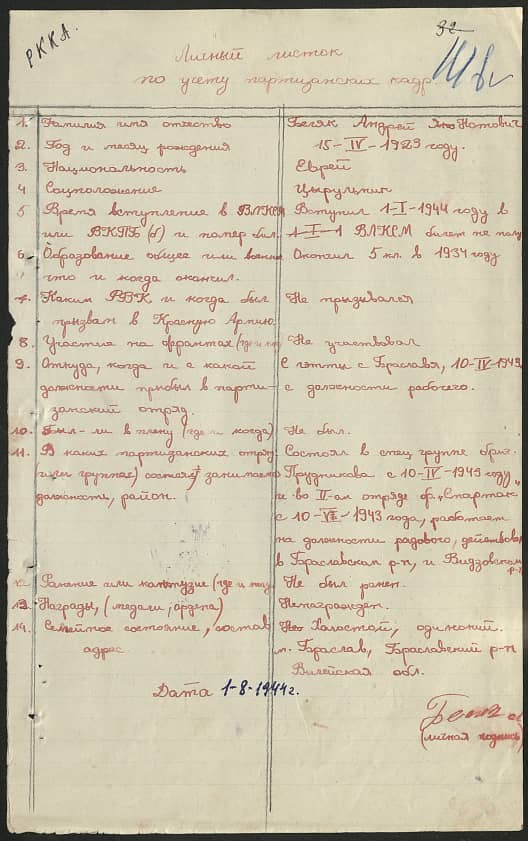 РККА.
32
Личный листок
по учету партизанских кадр
1. Фамилия имя отчество Беляк Андрей
2. Год и месяц рождения 15-IV-1929 году.
3. Национальность Еврей
4 Соцположение Цырульник
5 Время вступление в ВЛКСМ Вступил 1-I-1944 году в
или ВКПБ(б) и номер бил. 1-I-1 ВЛКСМ билет не полу
6. Образование общее или воен Окончил 5 кл. в 1934 году
что и когда окончил.
7. Каким РВК и когда был Не призывался
призван в Красную Армию
8. Участие на фронтах (где и ко Не участвовал
9. Откуда, когда и с какой С гэтты с Браславя, 10-IV-1943
должности прибыл в парти- с должности рабочего.
занский отряд.
10. Был-ли в плену (где и когда) Не был.
11. В каких партизанских отряд Состоял в спец группе бриг.
(или группах) состоял занимаем Прудникова с 10-IV-1943 году
должности, район. и во II-ом отряде бр. „Спартак"
с 10-VII-1943 года, работает
на должности рядового, действовал
в Браславском р-н, и Видзовском
р-н
12. Ранение или кантузие (где и ког Не был ранен.
13. Награды, (медали, ордена) Ненагражден.
14. Семейное состояние, состав Холостой, одинокий.
адрес. м. Браслав, Браславский р-н
Вилейская обл.
Дата 1-8-1944 г.
(личная подпись)